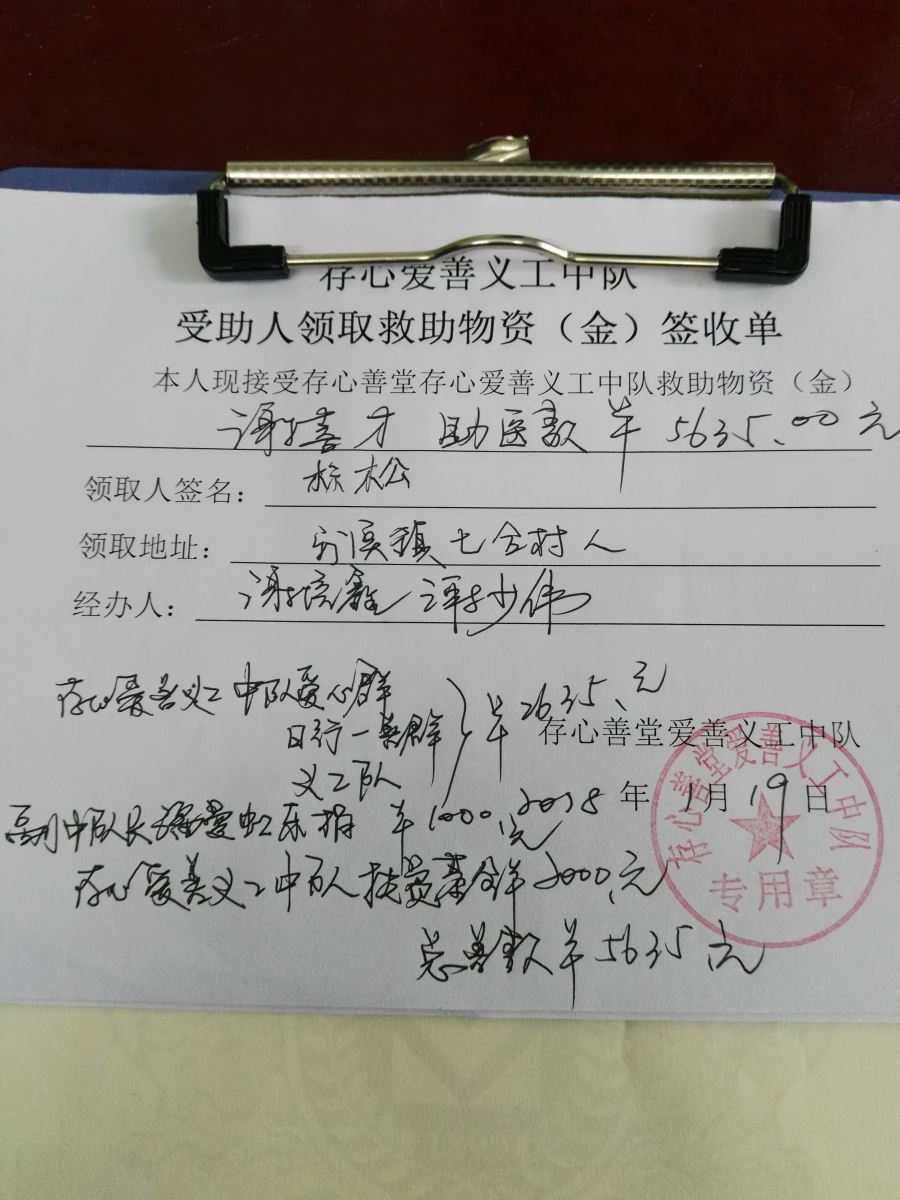 存心爱善义工中队
受助人领取救助物资（金）签收单
本人现接受存心善堂存心爱善义工中队救助物资（金）
谢喜才 助医款 羊 5635.00元
领取人签名： 松
领取地址： 镇七合村人
经办人： 谢培鑫 谭少伟
存心爱善义工中队爱心群
日行一善群
义工队
羊2635元
存心善堂爱善义工中队
2018年1月19日
副中队长 乐捐 羊1000元
存心爱善义工中队扶贫基金羊2000元
总善款羊5635元
存心善堂爱善义工中队
专用章